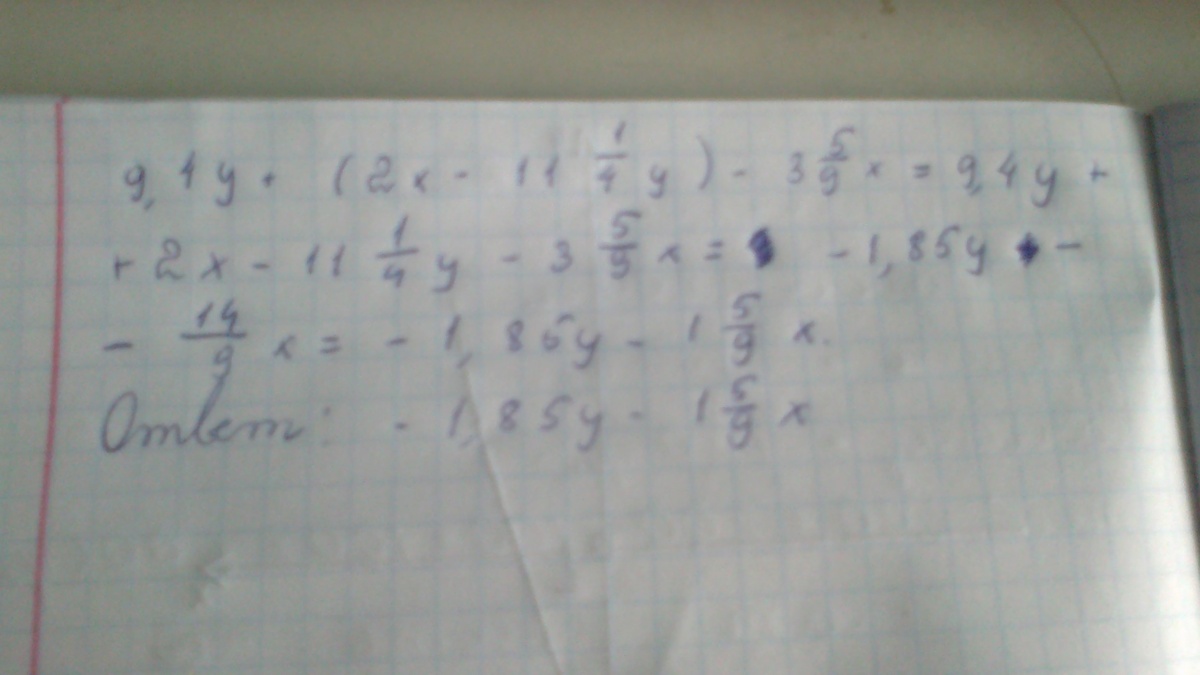 9,4y + (2x - 11 1/4 y) - 3 5/9 x = 9,4y +
+ 2x - 11 1/4 y - 3 5/9 x = - 1,85y -
- 14/9 x = - 1,85y - 1 5/9 x.
Ответ: - 1,85y - 1 5/9 x